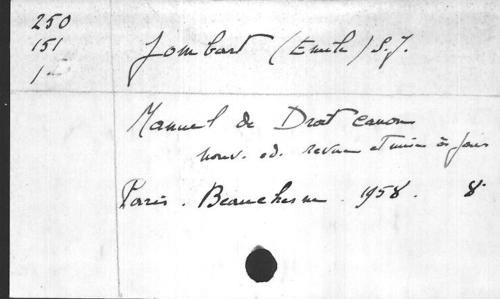 250
151
1
Jombart (Emile) S.J.
Manuel de Droit canon
nouv. ed. revue et mise à jour
Paris. Beauchesne. 1958. 8°